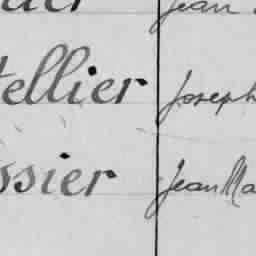 Jean
tellier Joseph
ssier Jean Ma